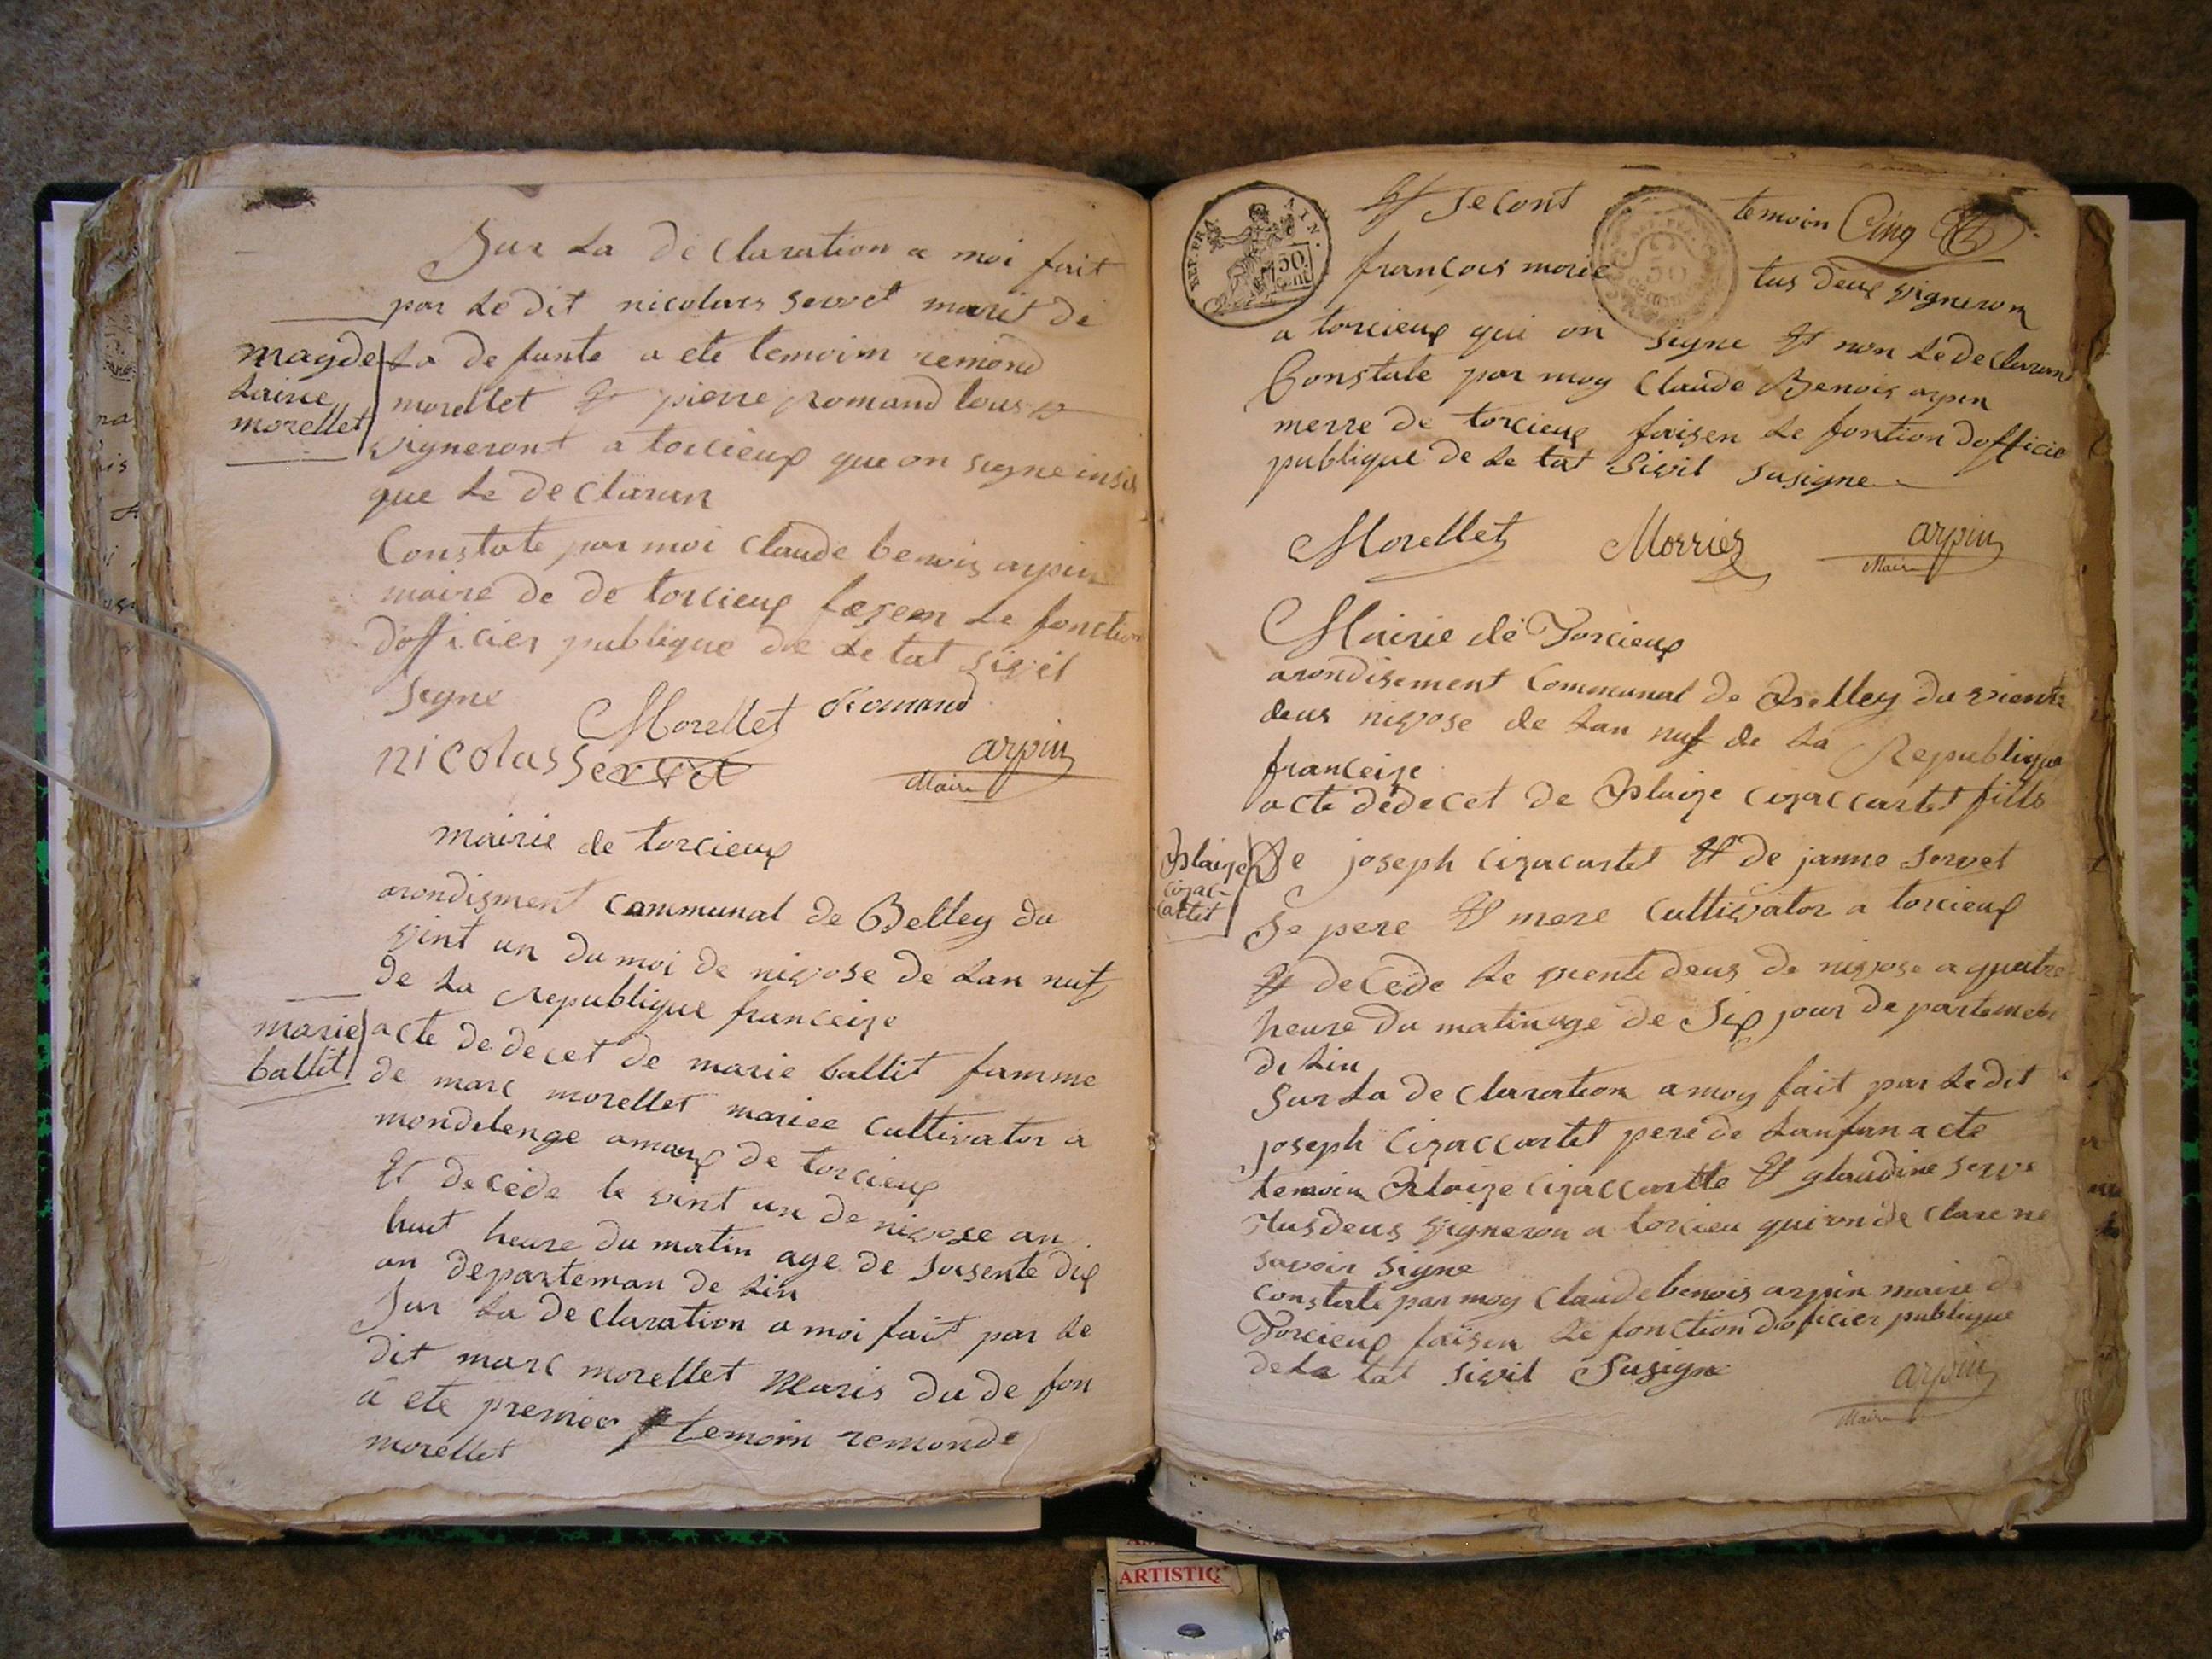 Sur La de Claration a moi fait
par Le dit nicolars servet marit de
magde
Laine
morellet
La de funte a ete temoim remond
morellet Et pierre romand tous
vigneront a torcieux que on signe insis
que Le de Claran
Constate par moi Claude benois arpin
maire de de torcieux faesen Le fonction
d'officier publique de Le tat sivil
signe
Morellet Romand
nicolas Servet
arpin
Maire
mairie de torcieux
arondisment Communal de Belley du
vint un du moi de nivose de Lan nuf
de La republique franceize
marie
ballit
acte de decet de marie ballit famme
de marc morellet mariee Cultivator a
mondelenge amaux de torcieux
Et decede le vint un de nivose an
huit heure du matin age de soisente dix
an departeman de Lin
Sur La de Claration a moi fait par Le
dit marc morellet Maris du de fon
a ete premier temoin remonde
morellet
REP. FRA. AIN.
50
Cent
Et Secont temoin Cinq
françois morie tus deux vigneron
a torcieux qui on signe Et non Le de Claran
Constate par moy Claude Benois arpin
merre de torcieux faisen Le fontion dofficie
publique de Le tat Sivil susigne
Morellet Morrier arpin
Maire
Mairie de Torcieux
arondisement Communal de Belley du viente
deus nivose de Lan nuf de La Republique
franceize
acte de decet de Blaize cizaccartet fills
Blaize
cizac-
cartet
De joseph Cizacartet Et de janne servet
Se pere Et mere Cultivator a torcieux
Et decede Le viente deus de nivose a quatre
heure du matin age de Six jour departement
de Lin
Sur La de Claration a moy fait par Le dit
joseph Cizaccartet pere de Lanfan acte
temoin Blaize cizaccartte Et glaudine serve
Tus deus vigneron a torcieu qui on de Clare ne
savoir signe
Constate par moy Claude benois arpin maire de
Torcieux faisen Le fonction doficier publique
de La tat sivil Susigne
arpin
Maire
ARTISTIQ